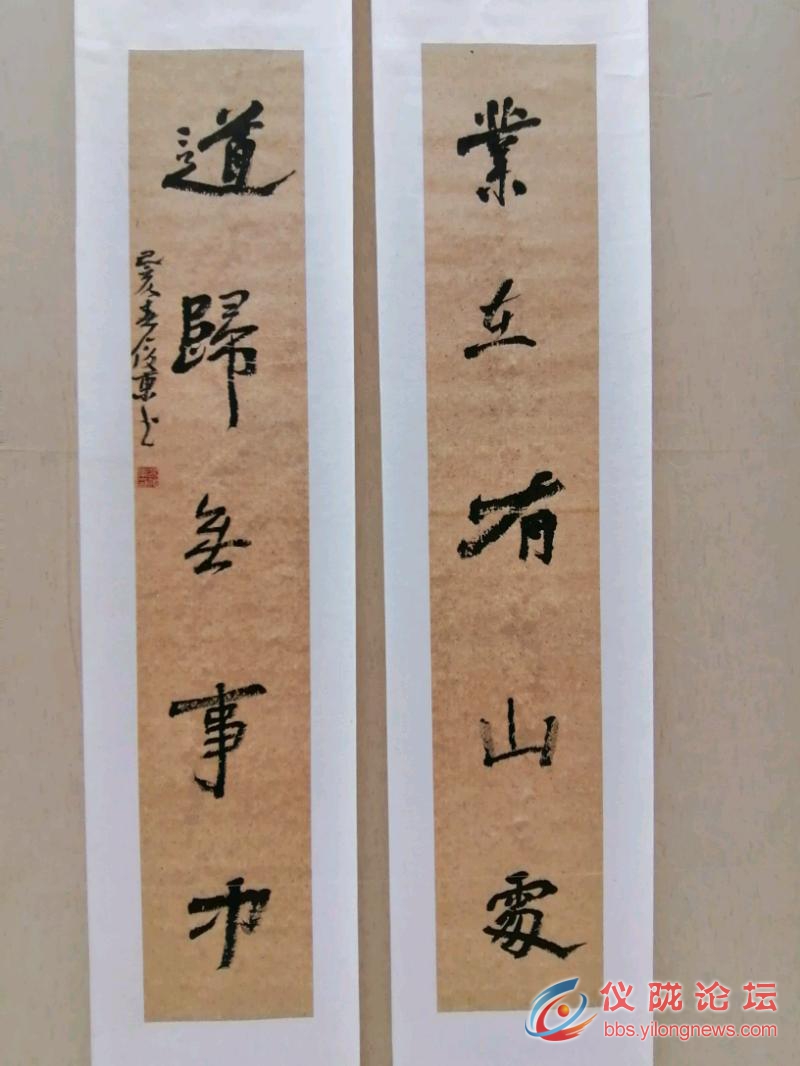 業在有山處
道歸無事中
己亥春
仪陇论坛
bbs.yilongnews.com